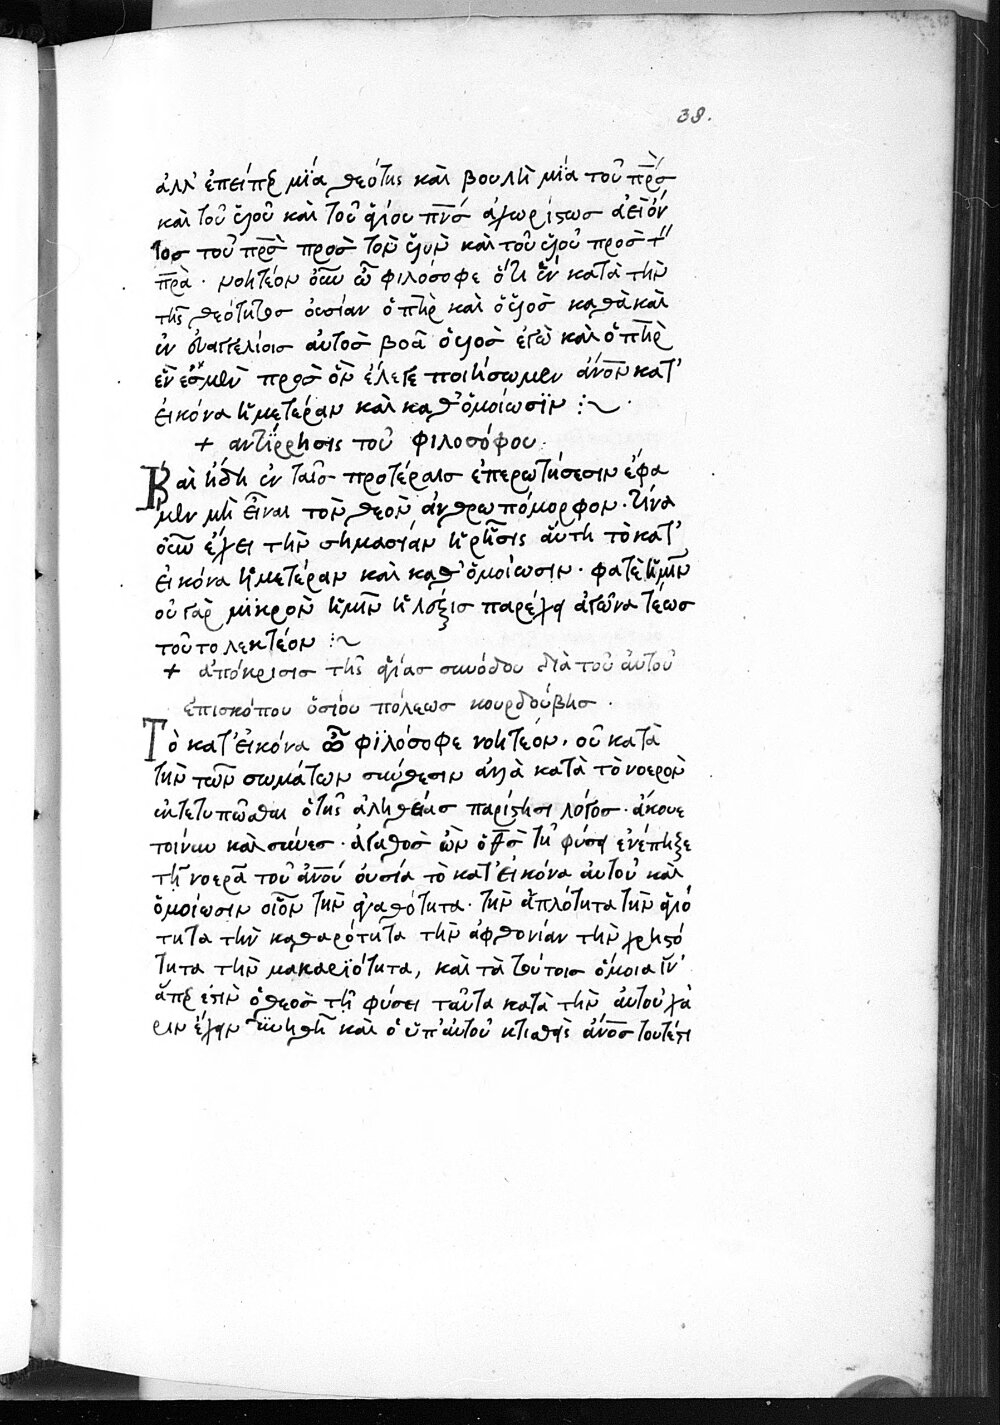 38.
ἀλλ' ἐπείπερ μία θεότης καὶ βουλὴ μία τοῦ πρ̅ς
καὶ τοῦ υἱοῦ καὶ τοῦ ἁγίου πν̅ς ἀχωρίστως ἀεὶ ὄν
τος τοῦ πρ̅ς πρὸς τὸν υἱὸν καὶ τοῦ υἱοῦ πρὸς τ
πρ̅α· νοητέον οὖν ὦ φιλόσοφε ὅτι ἓν κατὰ τὴν
τῆς θεότητος οὐσίαν ὁ πη̅ρ καὶ ὁ υἱὸς καθὰ καὶ
ἐν εὐαγγελίοις αὐτὸς βοᾶ ὁ υἱὸς ἐγὼ καὶ ὁ πη̅ρ
ἕν ἐσμεν πρὸς ὃν ἔλεγε ποιήσωμεν ἄνο̅ν κατ'
εἰκόνα ἡμετέραν καὶ καθ' ὁμοίωσϊν :~
+ ἀντίρρησις τοῦ φιλοσόφου·
Καὶ ἤδη ἐν ταῖς προτέραις ἐπερωτήσεσιν ἔφα
μεν μὴ εἶναι τὸν θεὸν ἀνθρωπόμορφον· τίνα
οὖν ἔχει τὴν σημασίαν ἡ ῥῆσις αὕτη τὸ κατ'
εἰκόνα ἡμετέραν καὶ καθ' ὁμοίωσιν· φατὲ ἡμῖν
οὐ γὰρ μϊκρὸν ἡμῖν ἡ λέξις παρέχει ἀγῶνα τέως
τοῦτο λεκτέον :~
+ ἀπόκρισις τῆς ἁγίας συνόδου διὰ τοῦ αὐτοῦ
ἐπισκόπου ὁσίου πόλεως κουρδούβης·
Τὸ κατ' εἰκόνα ὦ φϊλόσοφε νοητέον, οὐ κατὰ
τὴν τῶν σωμάτων σύνθεσιν ἀλλὰ κατὰ τὸ νοερὸν
ἐντετυπῶσθαι ὁ τῆς ἀληθείας παρίστησι λόγος· ἄκουε
τοίνυν καὶ σύνες· ἀγαθὸς ὢν ὁ θ̅ς τῇ φύσει ἐνέπηξε
τῇ νοερᾶ τοῦ ἀνο̅υ οὐσία τὸ κατ' εἰκόνα αὐτοῦ καὶ
ὁμοίωσιν οἷον τὴν ἀγαθότητα· τὴν ἁπλότητα τὴν ἁγιό
τητα τὴν καθαρότητα τὴν ἀφθονίαν τὴν χρηστό
τητα τὴν μακαρϊότητα, καὶ τὰ τούτοις ὅμοια ἵν'
ἅπερ ἐστὶν ὁ θεὸς τῇ φύσει ταῦτα κατὰ τὴν αὐτοῦ χά
ριν ἔχειν δυνηθῇ καὶ ὁ ὑπ' αὐτοῦ κτισθεὶς ἄνο̅ς τουτέστι